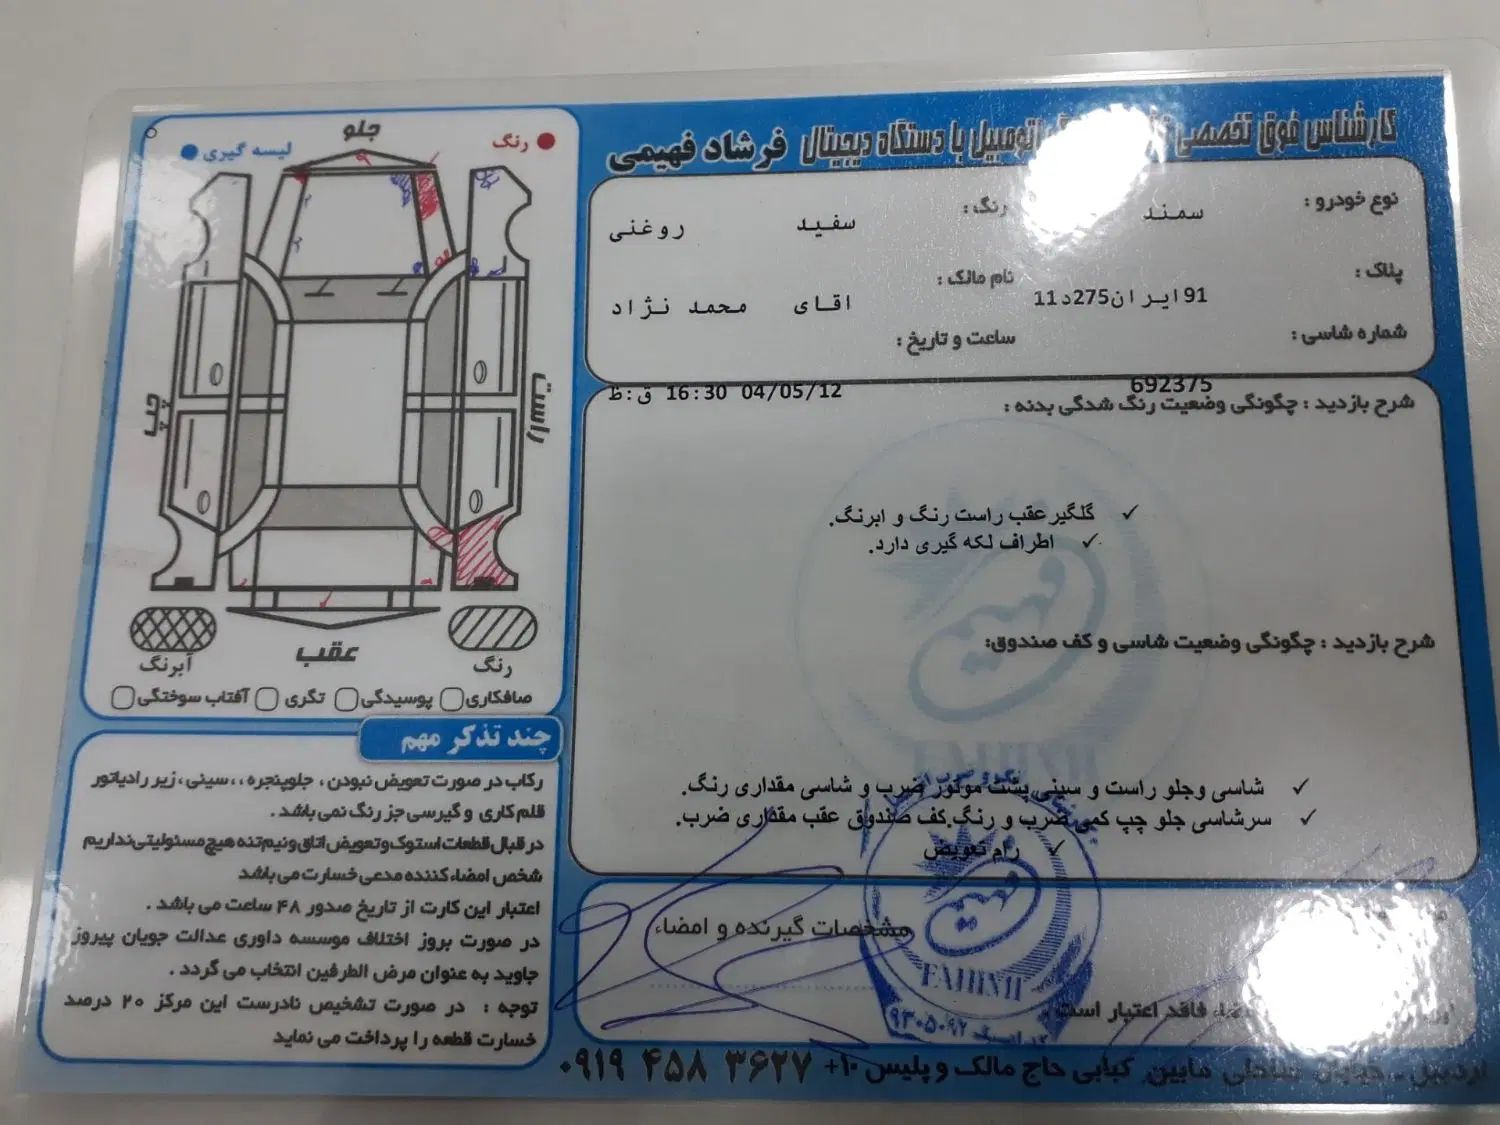 کارشناس فوق تخصصی اتومبیل با دستگاه دیجیتال فرشاد فهیمی
نوع خودرو : سمند
رنگ : سفید روغنی
پلاک : 91ایران275د11
نام مالک : اقای محمد نژاد
شماره شاسی : 692375
ساعت و تاریخ : 04/05/12 16:30 ق:ظ
شرح بازدید : چگونگی وضعیت رنگ شدگی بدنه :
✓ گلگیرعقب راست رنگ و ابرنگ.
✓ اطراف لکه گیری دارد.
شرح بازدید : چگونگی وضعیت شاسی و کف صندوق:
✓ شاسی وجلو راست و سینی پشت موتور ضرب و شاسی مقداری رنگ.
✓ سرشاسی جلو چپ کمی ضرب و رنگ.کف صندوق عقب مقداری ضرب.
✓ رام تعویض
مشخصات گیرنده و امضاء
فاقد اعتبار است
FAHIMI
۹۳۰۵۰۹۲
اردبیل - خیابان ساحلی مابین کبابی حاج مالک و پلیس ۱۰+ ۰۹۱۹ ۴۵۸ ۳۶۲۷
رنگ
لیسه گیری
جلو
چپ
راست
عقب
آبرنگ
رنگ
صافکاری
پوسیدگی
تگری
آفتاب سوختگی
چند تذکر مهم
رکاب در صورت تعویض نبودن ، جلوپنجره ،، سینی ، زیر رادیاتور
قلم کاری و گیرسی جز رنگ نمی باشد .
در قبال قطعات استوک و تعویض اتاق و نیم تنه هیچ مسئولیتی نداریم
شخص امضاء کننده مدعی خسارت می باشد
اعتبار این کارت از تاریخ صدور ۴۸ ساعت می باشد .
در صورت بروز اختلاف موسسه داوری عدالت جویان پیروز
جاوید به عنوان مرض الطرفین انتخاب می گردد .
توجه : در صورت تشخیص نادرست این مرکز ۲۰ درصد
خسارت قطعه را پرداخت می نماید